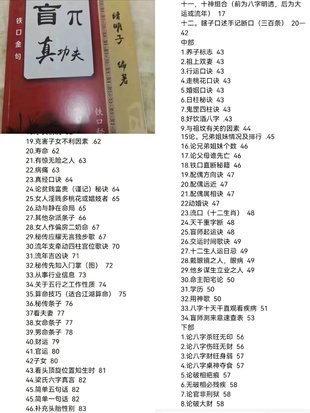 铁口金句
盲
真功夫
明子 编著
19.克妻子女不利因素 .62
20.寿命 .62
21.有惊无险之人 63
22.病痛 63
23.真经口诀 64
24.论贫贱富贵（谨记）秘诀 64
25.女人淫贱多桃花或娼妓者 65
26.动与静在命局 65
27.其他杂派条子 66
28.女人作偏房二奶命 67
29.秘传应耀无言独步歌 67
30.流年支牵动四柱宫位歌诀 70
31.流年吉凶诀 71
32.秘传先知入门掌（图） 72
33.从事行业信息 73
34.关于五行之工作性质 74
35.算命技巧（适合江湖算命） 75
36.秘传条子 76
37看夫妻 77
38.女命条子 77
39.男命条子 78
40.财运 79
41.官运 80
42子女 80
43.看头顶旋位置知生时 81
44.梁氏六字真言 82
45.简单五句话 82
45.简单一句话 82
46.补充头胎性别 83
十一、十神组合（前为八字明透，后为大
运或流年） 17
十二、瞎子口述手记断口（三百条） 20—
42
中部
1.养子标志 43
2.祖上双妻 43
3.行运口诀 43
4.走桃花口诀 43
5.婚姻口诀 43
6.日柱秘诀 43
7.鬼罡四柱诀 43
8.好饮酒八字 .43
9.与祖坟有关的因素 44
15论、兄弟姐妹情况及排行 .45
16.论兄弟姐妹个数 46
17.论父母谁先亡 46
18.铁口直断秘籍 46
19.配偶方向诀 47
20.配偶远近 47
21.配偶属相诀 47
22动婚诀 47
23.流口（十二生肖） 48
24.天干重字断 48
25.盲师起运诀 48
26.交运时间歌诀 49
27.十二生人运日忌 49
28.戴眼镜之人、眼病 49
29.他乡谋生立业之人 49
30.命主阳宅论 50
31.学历 50
32.用神歌 50
33.八字十天干直观看疾病 51
34.盲师测来意速查表 53
下部
1.论八字杀旺无印 56
2.论八字伤旺无财 56
3.论八字财旺身弱 57
4.论八字枭神夺食 57
5.论破相疤痕 57
6.无破相必残疾 58
7.论官非刑狱 58
8.论破大财 58